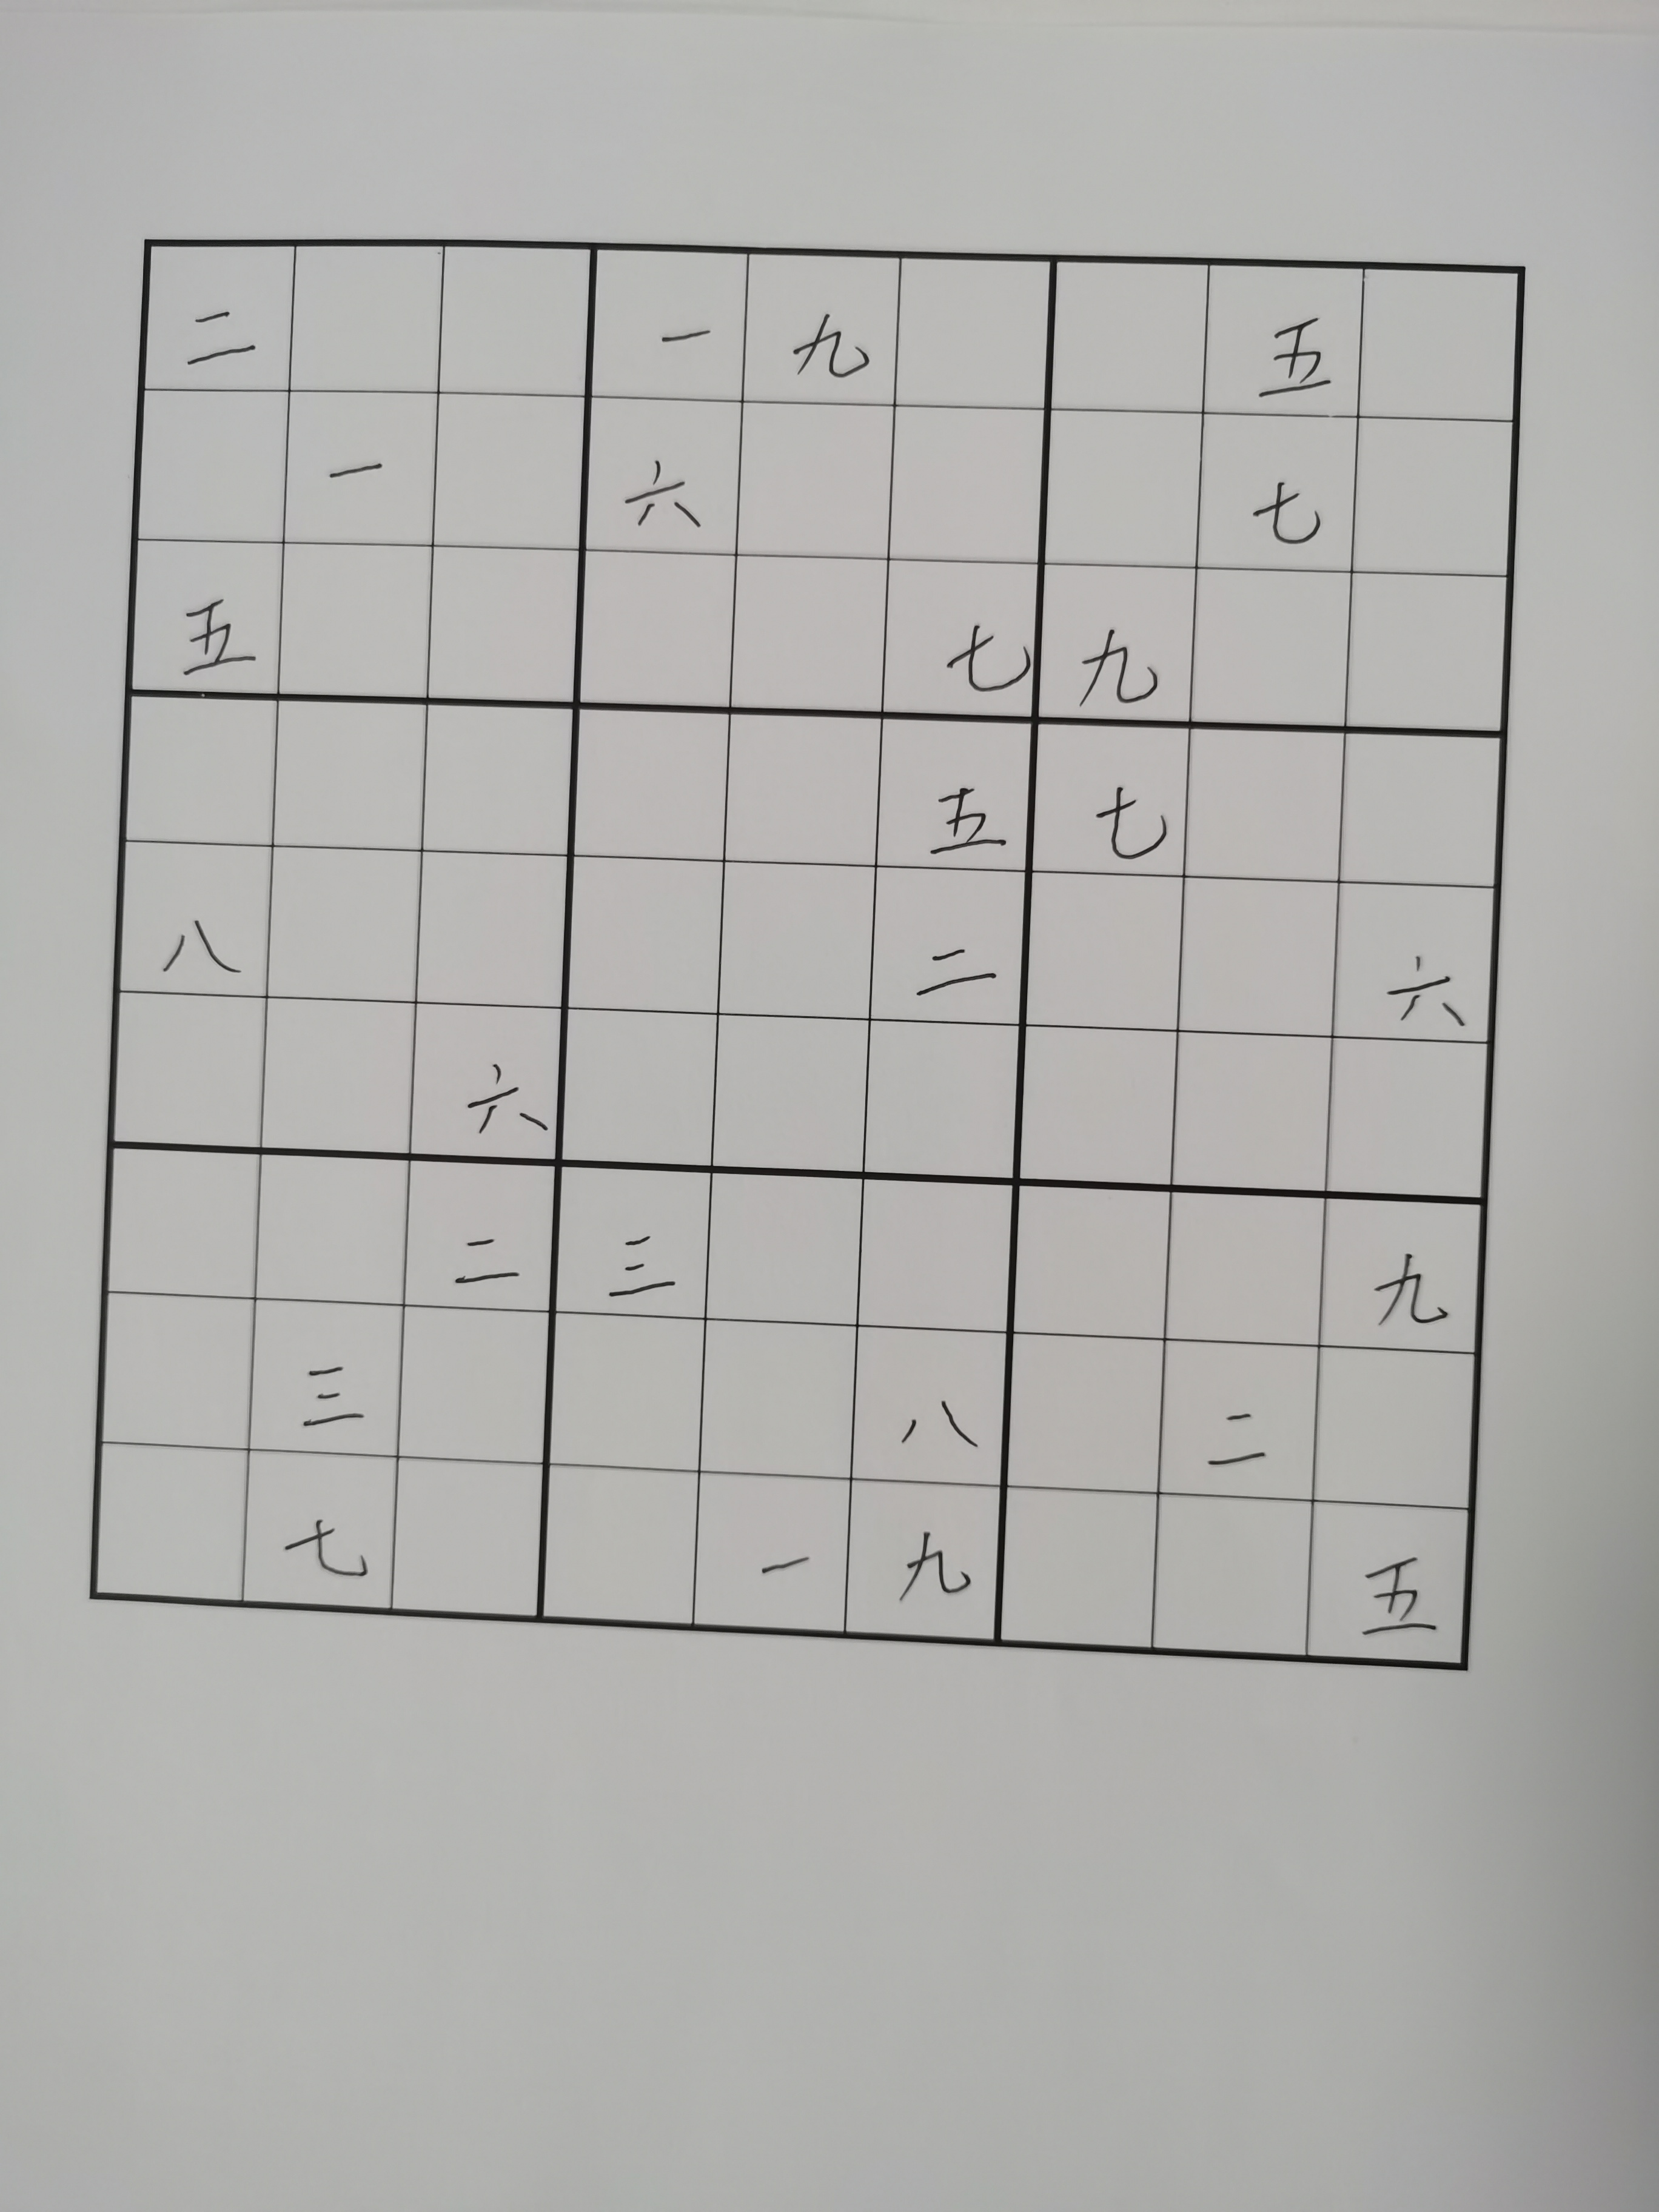 二 一 九 五
一 六 七
五 七 九
五 七
八 二 六
六
二 三 九
三 八 二
七 一 九 五